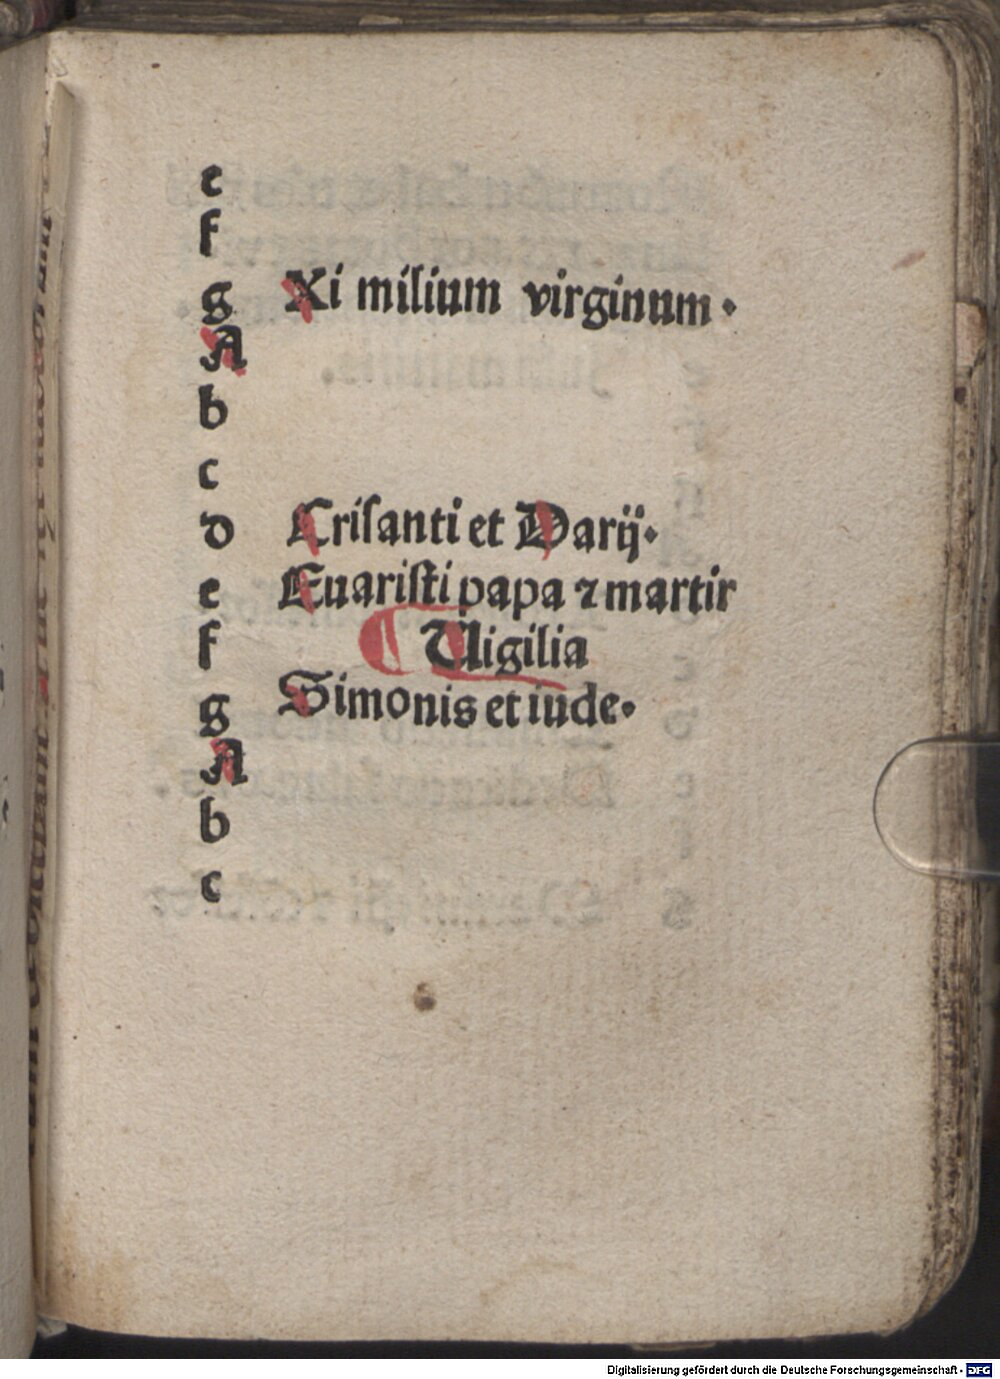 e
f
g Xi milium virginum.
A
b
c
d Crisanti et Darij.
e Euaristi papa ⁊ martir
f Uigilia
g Simonis et iude.
A
b
c
Digitalisierung gefördert durch die Deutsche Forschungsgemeinschaft - DFG